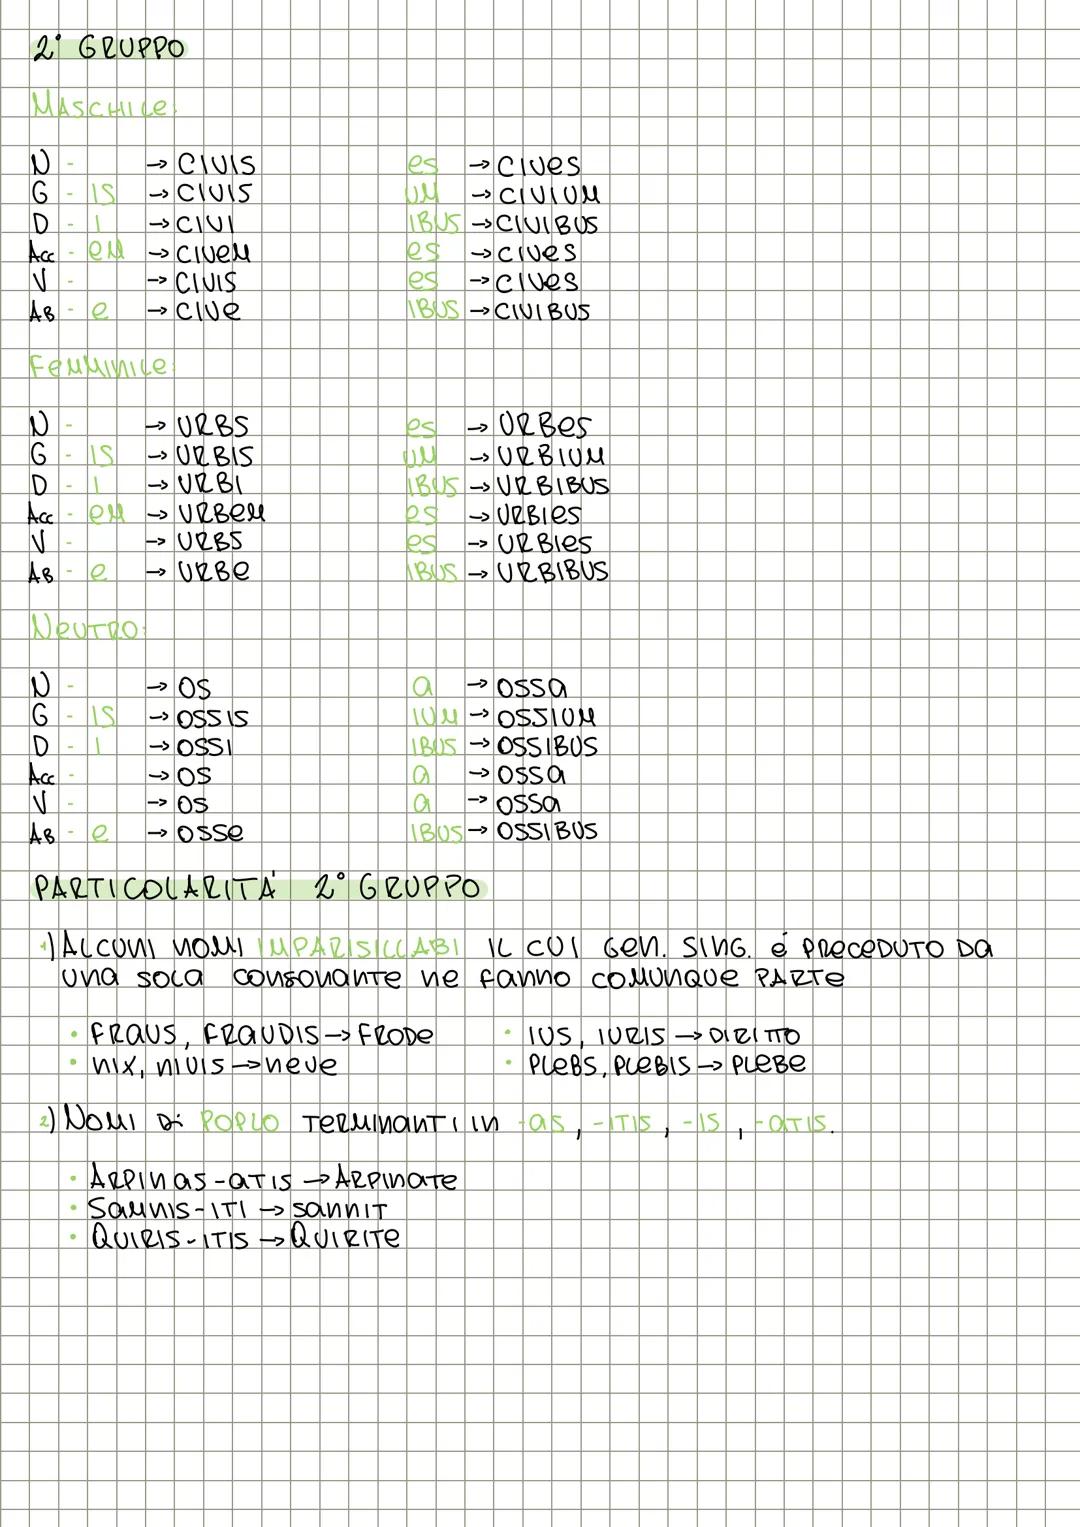 2° GRUPPO
MASCHILE:
N - → CIVIS es → CIVES
G - IS → CIVIS UM → CIVIUM
D - I → CIVI IBUS → CIVIBUS
Acc - EM → CIVEM es → CIVES
V - → CIVIS es → CIVES
AB - e → CIVE IBUS → CIVIBUS
FEMMINILE:
N - → URBS es → URBES
G - IS → URBIS UM → URBIUM
D - I → URBI IBUS → URBIBUS
Acc - EM → URBEM es → URBIES
V - → URBS es → URBIES
AB - e → URBE IBUS → URBIBUS
NEUTRO:
N - → OS a → OSSA
G - IS → OSSIS IUM → OSSIUM
D - I → OSSI IBUS → OSSIBUS
Acc - → OS a → OSSA
V - → OS a → OSSA
AB - e → OSSE IBUS → OSSIBUS
PARTICOLARITÀ 2° GRUPPO
1) ALCUNI NOMI IMPARISILLABI IL CUI GEN. SING. é PRECEDUTO DA
UNA SOLA CONSONANTE NE FANNO COMUNQUE PARTE
• FRAUS, FRAUDIS → FRODE • IUS, IURIS → DIRITTO
• NIX, NIVIS → NEVE • PLEBS, PLEBIS → PLEBE
2) NOMI Di POPLO TERMINANTI IN -as, -ITIS, -IS, -ATIS.
• ARPINAS-ATIS → ARPINATE
• SAMNIS-ITI → SANNIT
• QUIRIS-ITIS → QUIRITE